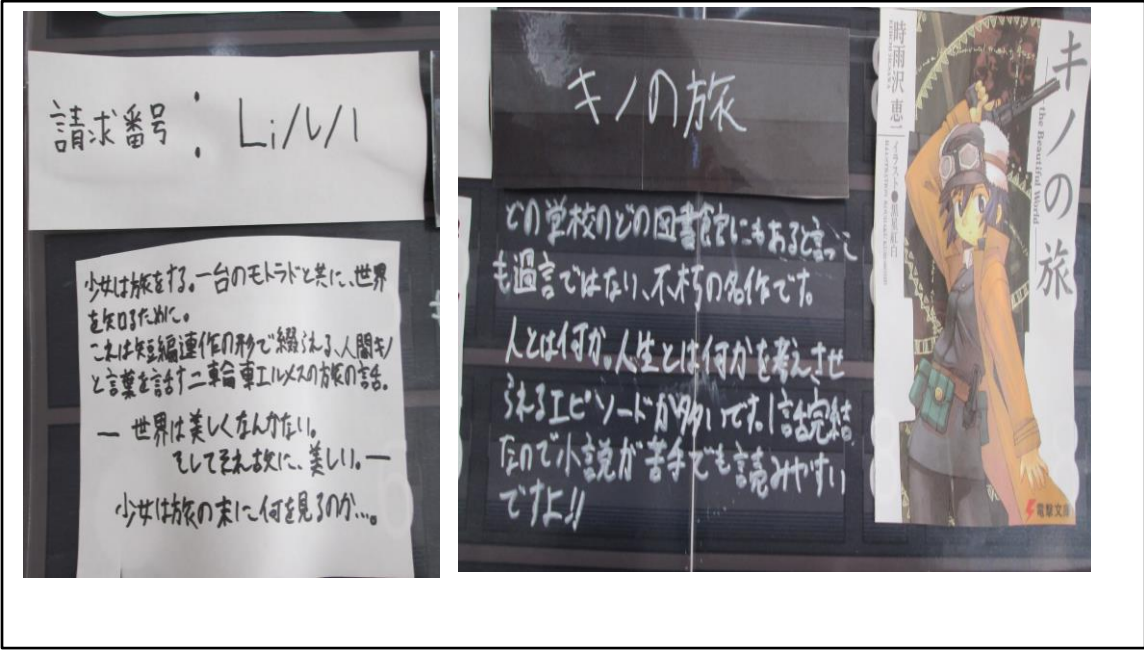 請求番号 : Li/ル/1
少女は旅をする。一台のモトラドと共に、世界
を知るために。
これは短編連作の形で綴られる、人間キノ
と言葉を話す二輪車エルメスの旅の話。
― 世界は美しくなんかない。
そしてそれ故に、美しい。―
少女は旅の末に何を見るのか…。
キノの旅
どの学校のどの図書館にもあると言って
も過言ではない、不朽の名作です。
人とは何か。人生とは何かを考えさせ
られるエピソードが多いです。1話完結
なので小説が苦手でも読みやすい
ですよ!!
キノの旅
the Beautiful World
時雨沢恵一
イラスト●黒星紅白
電撃文庫